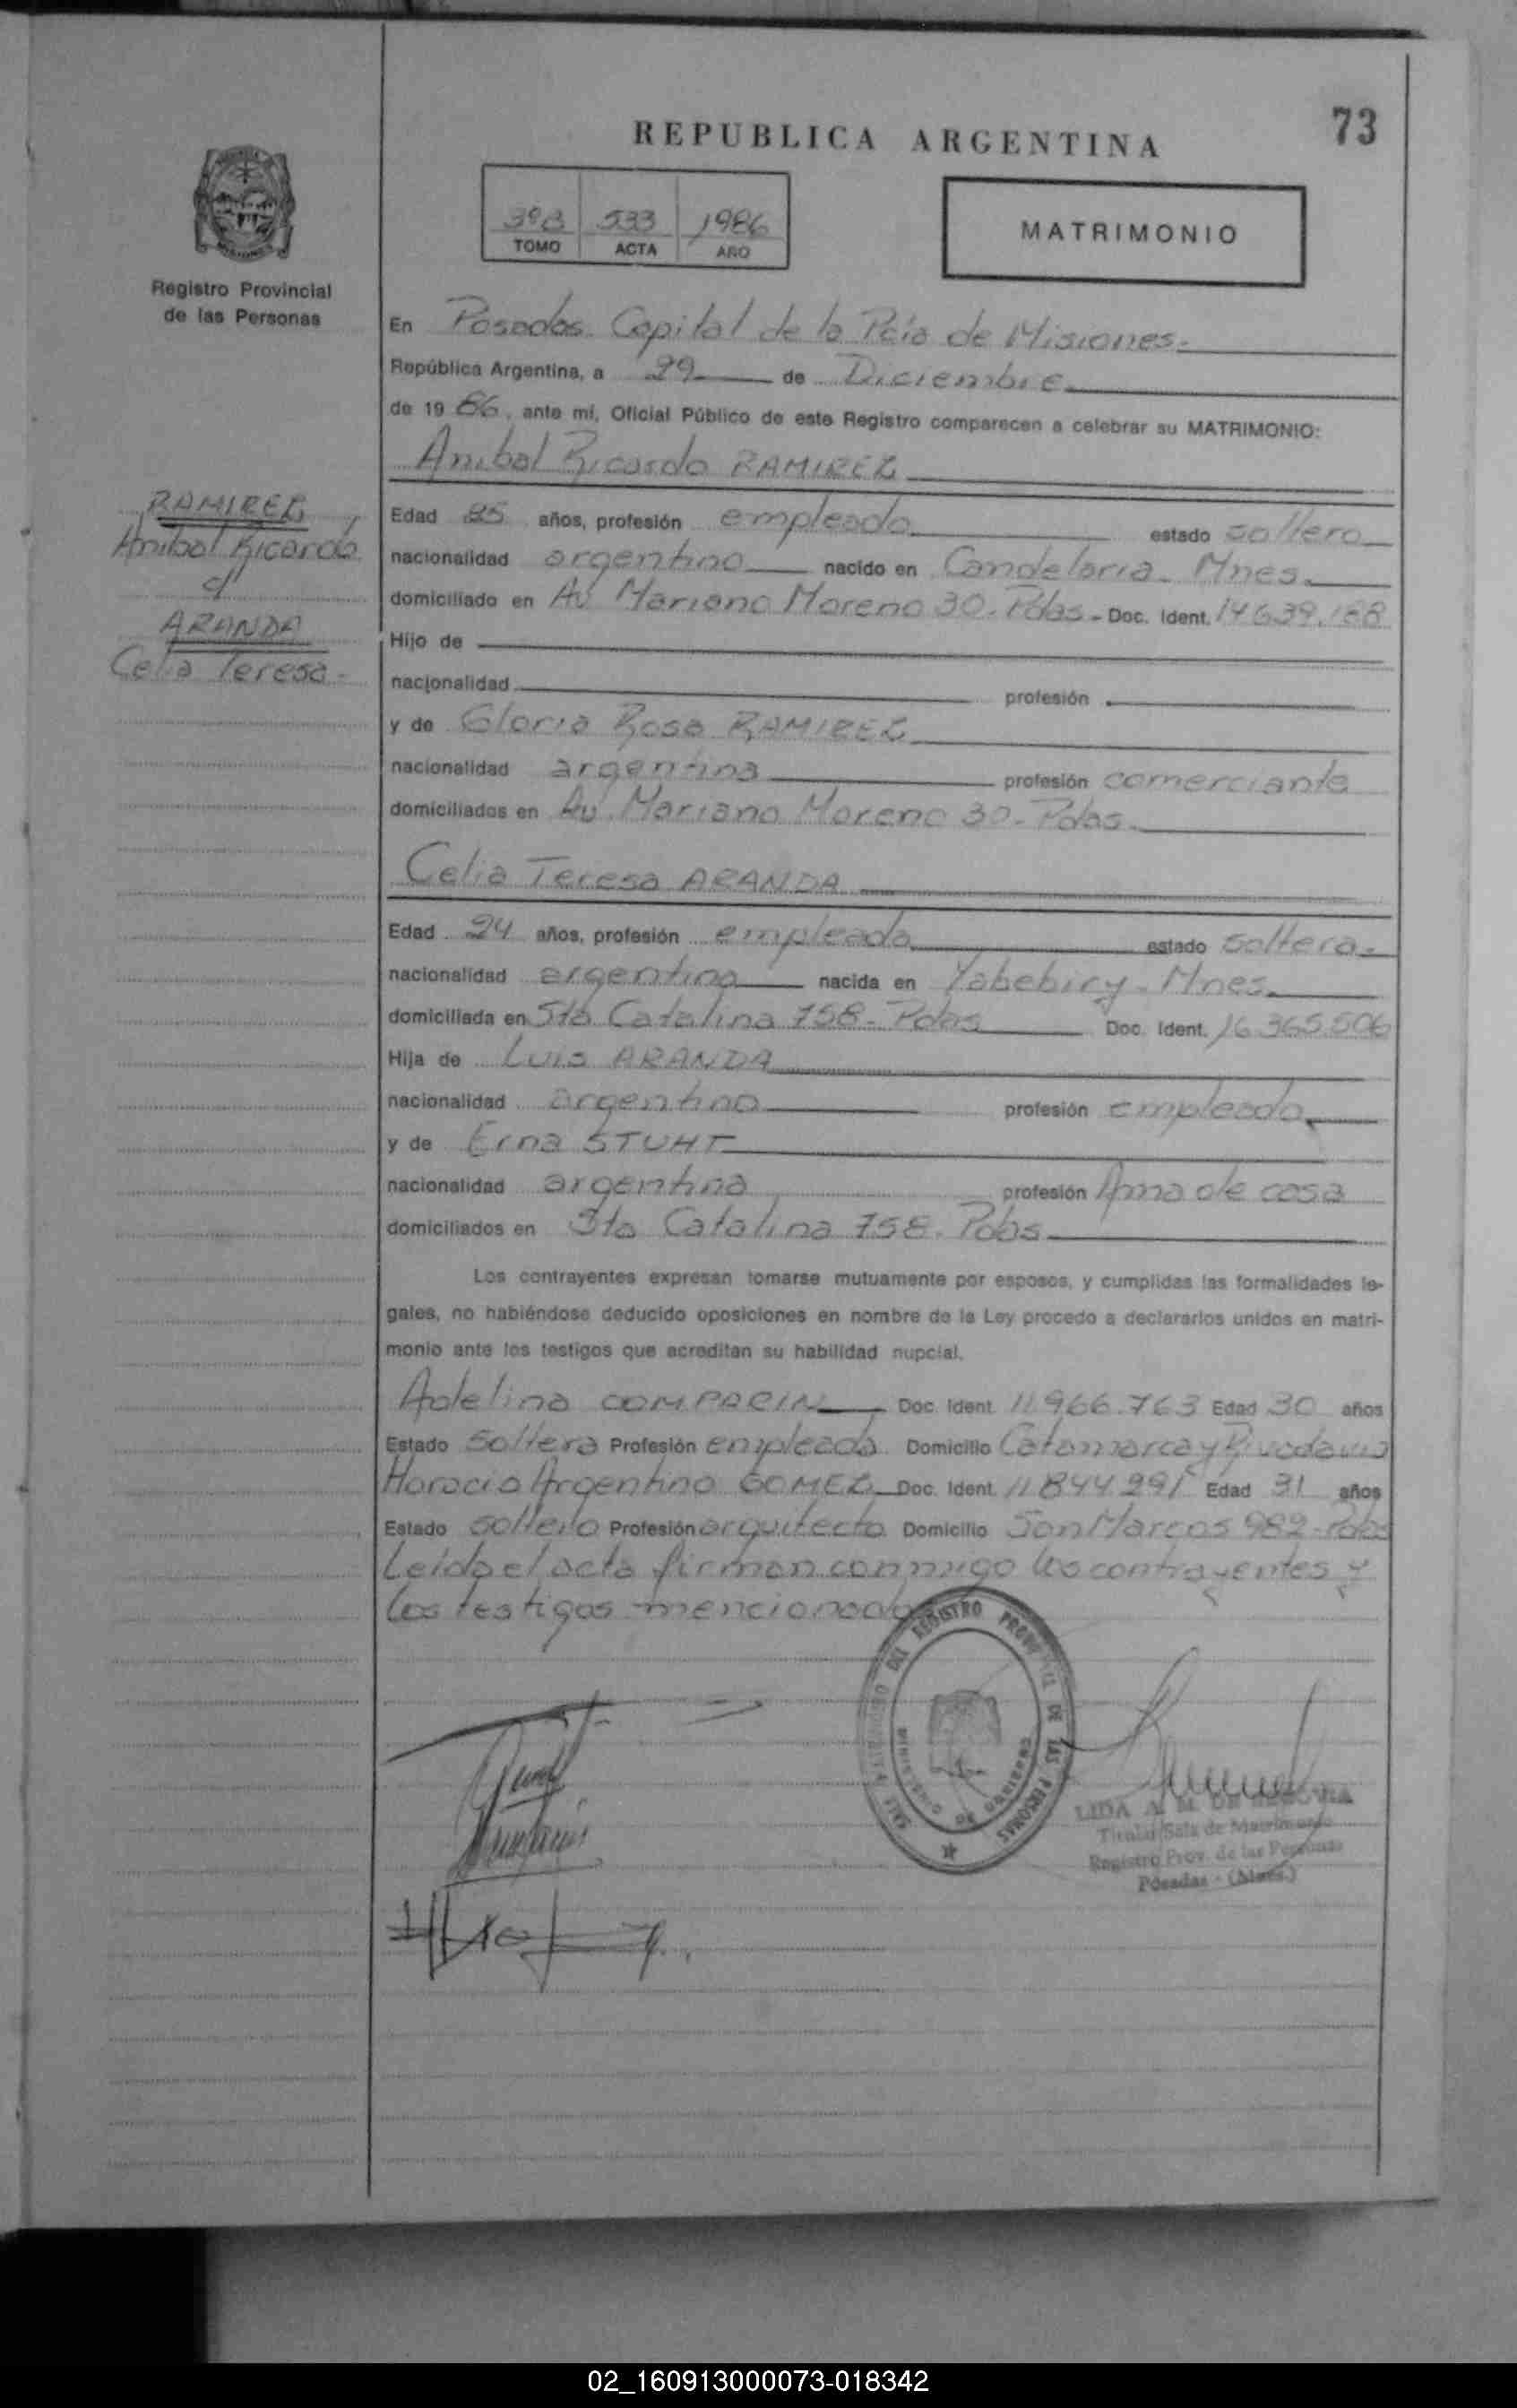 73
REPUBLICA ARGENTINA
533 1986
TOMO ACTA AÑO
MATRIMONIO
Registro Provincial
de las Personas
En Posadas Capital de la Pcia de Misiones.
República Argentina, a 29 de Diciembre
de 1986, ante mí, Oficial Público de este Registro comparecen a celebrar su MATRIMONIO:
Anibal Ricardo RAMIREZ
RAMIREZ
Anibal Ricardo
c/
ARANDA
Celia Teresa-
Edad 25 años, profesión empleado estado soltero
nacionalidad argentino nacido en Candelaria. Mnes.
domiciliado en Av Mariano Moreno 30. Pdas - Doc. Ident. 14.639.188
Hijo de
nacionalidad profesión
y de Gloria Rosa RAMIREZ
nacionalidad argentina profesión comerciante
domiciliados en Av. Mariano Moreno 30. Pdas.
Celia Teresa ARANDA
Edad 24 años, profesión empleada estado soltera-
nacionalidad argentina nacida en Yabebiry. Mnes.
domiciliada en Sta Catalina 758 - Pdas Doc. Ident. 16.365.506
Hija de Luis ARANDA
nacionalidad argentino profesión empleado
y de Erna STUHT
nacionalidad argentina profesión Ama de casa
domiciliados en Sta Catalina 758. Pdas
Los contrayentes expresan tomarse mutuamente por esposos, y cumplidas las formalidades le-
gales, no habiéndose deducido oposiciones en nombre de la Ley procedo a declararlos unidos en matri-
monio ante los testigos que acreditan su habilidad nupcial.
Adelina COMPARIN Doc. Ident. 11.966.763 Edad 30 años
Estado Soltera Profesión empleada Domicilio Catamarca y Rivadavia
Horacio Argentino GOMEZ Doc. Ident. 11844291 Edad 31 años
Estado soltero Profesión arquitecto Domicilio San Marcos 982 - Pdas
Leida el acta firman conmigo los contrayentes y
los testigos mencionados
REGISTRO PROVINCIAL DE LAS PERSONAS
MINISTERIO DE GOBIERNO
LIDA A. M. DE SEGOVIA
Titular Sala de Matrimonio
Registro Prov. de las Personas
Posadas - (Mnes.)
02_160913000073-018342